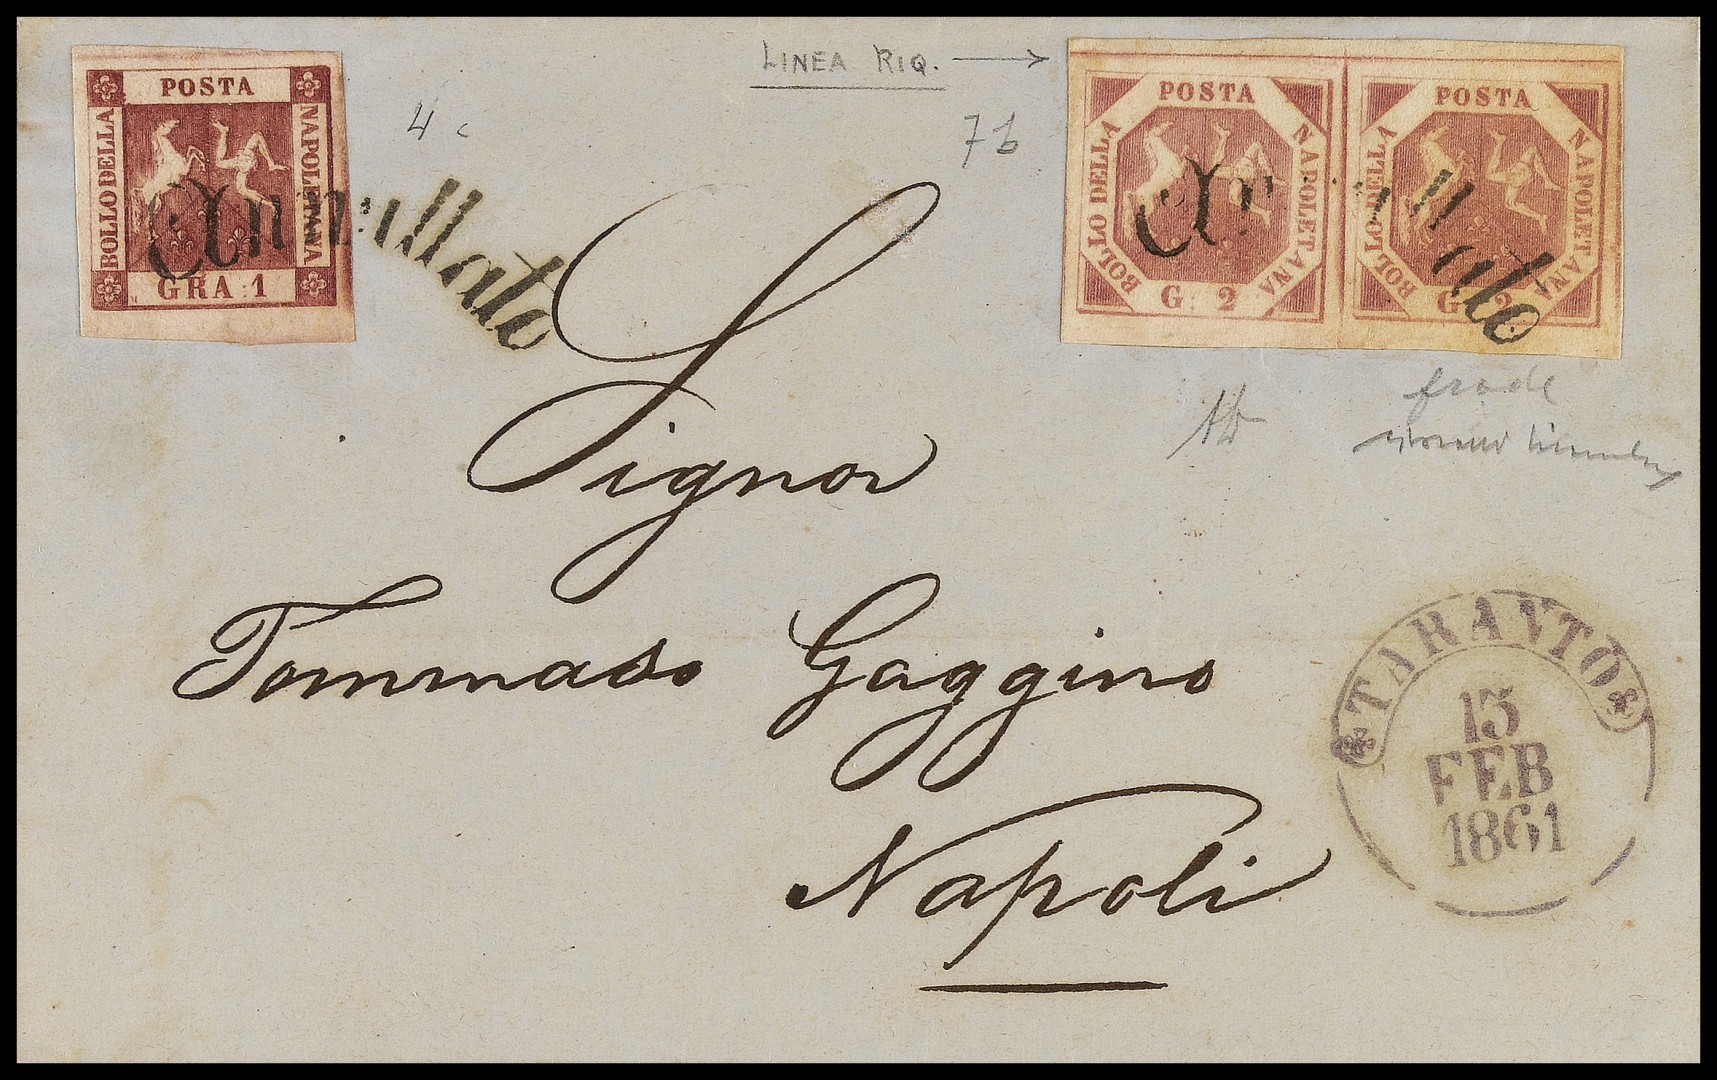 POSTA
BOLLO DELLA
NAPOLETANA
GRA 1
Annullato
4 c
LINEA RIQ. →
7b
POSTA
BOLLO DELLA
NAPOLETANA
G. 2
POSTA
BOLLO DELLA
NAPOLETANA
G. 2
Annullato
frode
Signor
Tommaso Gaggino
Napoli
TARANTO
15
FEB
1861